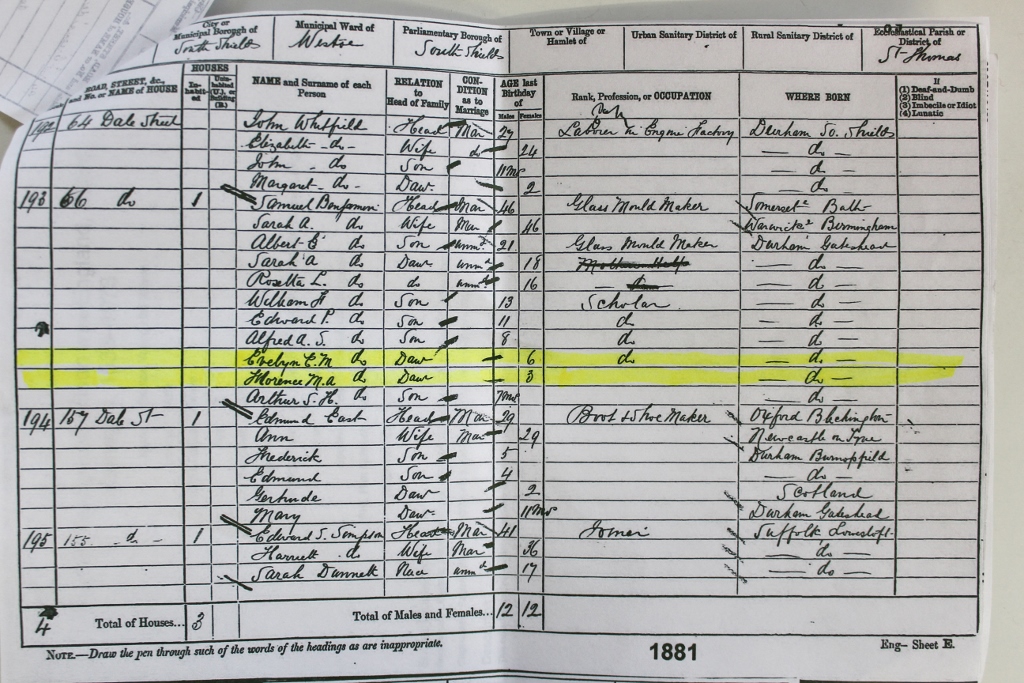 City or Municipal Borough of South Shields
Municipal Ward of Westoe
Parliamentary Borough of South Shields
Town or Village or Hamlet of
Urban Sanitary District of
Rural Sanitary District of
Ecclesiastical Parish or District of St Thomas
ROAD, STREET, &c., and No. or NAME of HOUSE
HOUSES
In-habit-ed
Unin-habited (U.), or Building (B.)
NAME and Surname of each Person
RELATION to Head of Family
CON-DITION as to Marriage
AGE last Birthday of
Males Females
Rank, Profession, or OCCUPATION
WHERE BORN
If
(1) Deaf-and-Dumb
(2) Blind
(3) Imbecile or Idiot
(4) Lunatic
192 64 Dale Street John Whitfield Head Mar 27 Laborer in Engine Factory Durham So. Shields
Elizabeth do Wife do 24 do
John do Son 11 Mos do
Margaret do Daur 2 do
193 66 do 1 Samuel Benjamin Head Mar 46 Glass Mould Maker Somerset Bath
Sarah A. do Wife Mar 46 Warwick Birmingham
Albert do Son unmd 21 Glass Mould Maker Durham Gateshead
Sarah A do Daur unmd 18 do
Rosetta L. do do unmd 16 do
William do Son 13 Scholar do
Edward P. do Son 11 do do
Alfred A. S. do Son 8 do do
Evelyn E. M do Daur 6 do do
Florence M. A do Daur 3 do
Arthur S. H. do Son 7 Mos do
194 157 Dale St 1 Edmund East Head Mar 29 Boot & Shoe Maker Oxford
Ann Wife Mar 29 Newcastle on Tyne
Frederick Son 5 Durham Burnopfield
Edmund Son 4 do
Gertrude Daur 2 Scotland
Mary Daur 11 Mos Durham Gateshead
195 155 do 1 Edward S. Simpson Head Mar 41 Joiner Suffolk Lowestoft
Harriett do Wife Mar 36 do
Sarah Dunnett Niece unmd 17 do
4 Total of Houses... 3 Total of Males and Females... 12 12
NOTE.—Draw the pen through such of the words of the headings as are inappropriate.
1881
Eng- Sheet E.